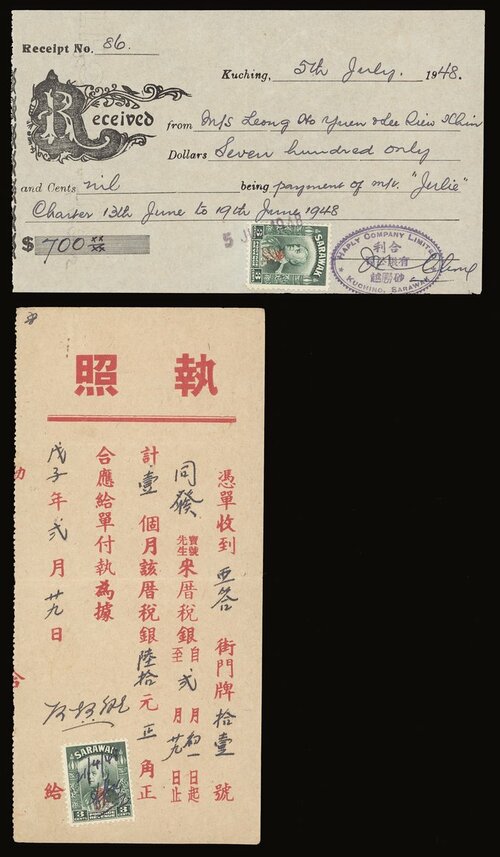 Receipt No. 86.
Kuching, 5th July. 1948.
Received from M/s Leong Ho Yuen & Lee Riew Khim
Dollars Seven hundred only
and Cents nil being payment of m/v. "Julie"
Charter 13th June to 19th June 1948
$ 700 xx/xx
5 JUL 1948
SARAWAK
3
HAPLY COMPANY LIMITED
合利
有限公司
砂朥越
KUCHING, SARAWAK
執照
憑單收到亞答街門牌拾壹號
同發
寶號
先生
來厝稅銀自弍月初一日起
至月廿九日止
計壹個月該厝稅銀陸拾元正角正
合應給單付執為據
戊子年弍月廿九日
給
SARAWAK
3